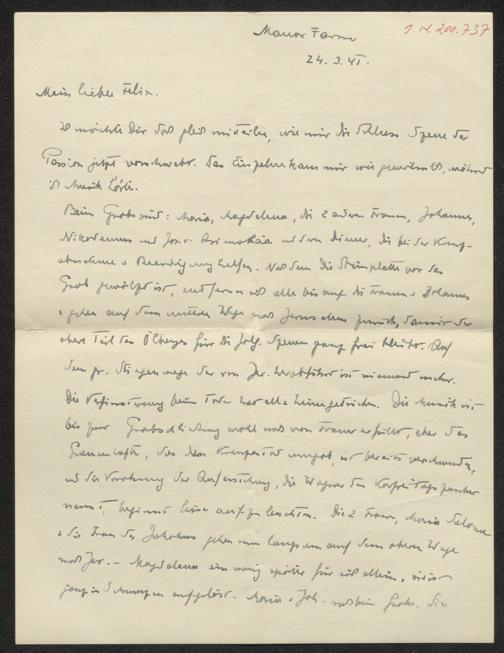 Manor Farm
I.N. 200.737
24. 3. 41.
Mein lieber Felix.
möchte Dir doch gleich mitteilen, wie mir die Schluss Szene der
Passion jetzt vorschwebt. Das Einzelne kam mir wie gewöhnlich, während
ich Musik hörte.
Beim Grabe sind: Maria, Magdalena, die 2 andern Frauen, Johannes,
Nikodemus und Jos. v. Arimathia und deren Diener, die bei der Kreuz-
abnahme & Beerdigung helfen. Nachdem die Steinplatte vor das
Grab gewälzt ist, entfernen sich alle bis auf die Frauen & Johannes
& gehen auf dem unteren Wege nach Jerusalem zurück, damit der
obere Teil des Ölberges für die folg. Szenen ganz frei bleibt. Auf
dem gr. Stiegenwege der von Jer. herabführt ist niemand mehr.
Die Verfinsterung beim Tode hat alle heimgetrieben. Die Musik ist
bis zur Grabschließung wohl noch von Trauer erfüllt, aber das
Grauenhafte, das den Kreuzestod umgab, ist bereits verschwunden,
und die Vorahnung der Auferstehung, die Wagner den Karfreitagszauber
nennt, beginnt leise aufzuleuchten. Die 2 Frauen, Maria Salome
& die Frau des Jakobus gehen nun langsam auf dem oberen Wege
nach Jer. – Magdalena ein wenig später für sich allein,
ganz in Schmerzen aufgelöst. Maria & Joh. noch beim Grabe. Sie